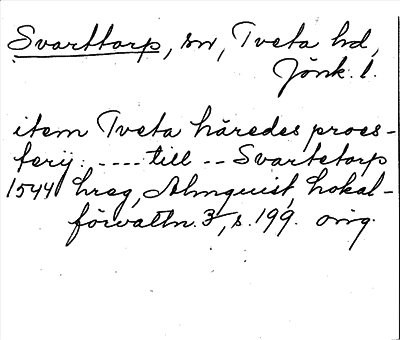 Svarttorp, sn, Tveta hd,
Jönk. l.
item Tveta häredes proes-
terij. ---- till -- Svartetorp
1544 hreg, Almquist, Lokal-
förvaltn. 3, s. 199. orig.